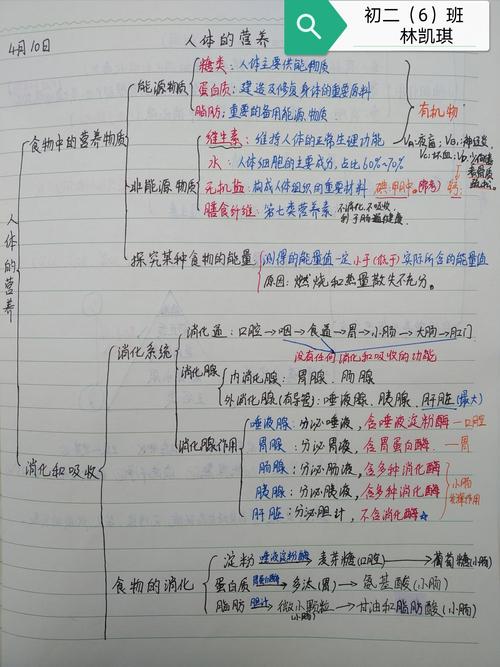 初二（6）班
林凯琪
4月10日
人体的营养
人体的营养
食物中的营养物质
能源物质
糖类：人体主要供能物质
蛋白质：建造及修复身体的重要原料
脂肪：重要的备用能源物质
有机物
非能源物质
维生素：维持人体的正常生理功能
VA：夜盲；VB：神经炎
VC：坏血；VD：
水：人体细胞的主要成分，占比60%~70%
无机盐：构成人体组织的重要材料
膳食纤维：第七类营养素
不消化不吸收
利于肠道健康
探究某种食物的能量
测得的能量值一定小于(低于)实际所含的能量值
原因：燃烧和热量散失不充分。
消化和吸收
消化系统
消化道：口腔→咽→食道→胃→小肠→大肠→肛门
没有任何消化和吸收的功能
消化腺
内消化腺：胃腺、肠腺
外消化腺(有导管)：唾液腺、胰腺、肝脏(最大)
消化腺作用
唾液腺：分泌唾液，含唾液淀粉酶—口腔
胃腺：分泌胃液，含胃蛋白酶—胃
肠腺：分泌肠液，含多种消化酶
胰腺：分泌胰液，含多种消化酶
肝脏：分泌胆汁，不含消化酶☆
小肠
发挥作用
食物的消化
淀粉 唾液淀粉酶→麦芽糖(口腔)→葡萄糖(小肠)
蛋白质 胃蛋白酶→多肽(胃)→氨基酸(小肠)
脂肪 胆汁→微小颗粒(小肠)→甘油和脂肪酸(小肠)